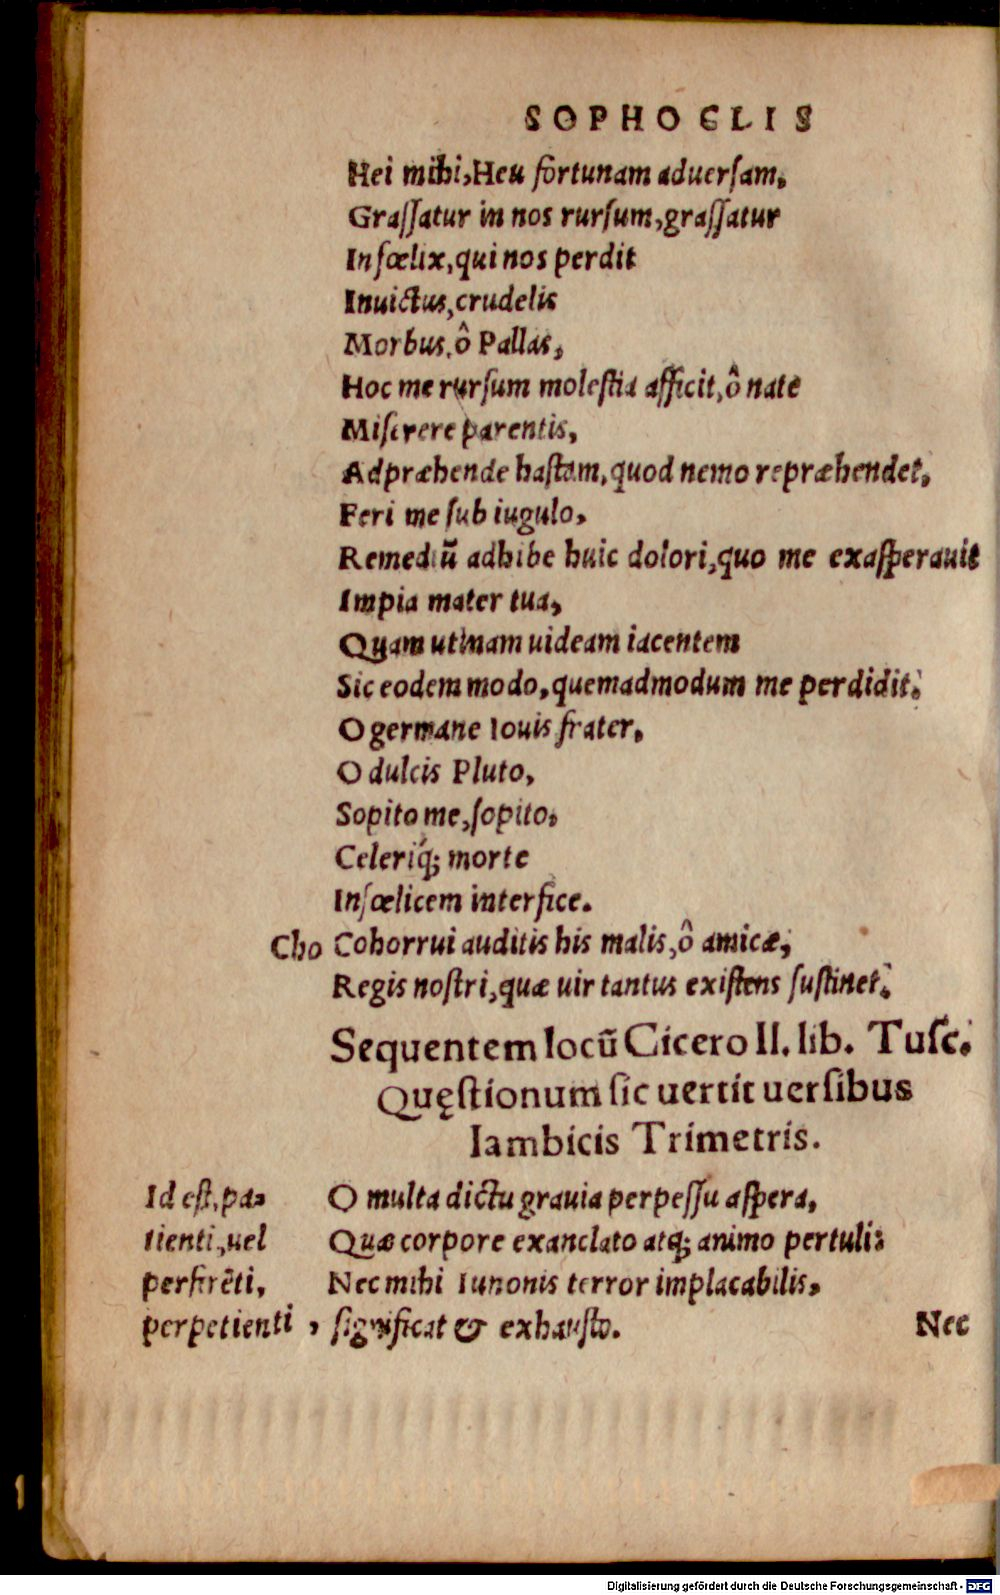 SOPHOCLIS
Hei mihi, Heu fortunam aduersam,
Graſſatur in nos rurſum, graſſatur
Inſœlix, qui nos perdit
Inuictus, crudelis
Morbus, ô Pallas,
Hoc me rurſum moleſtia afficit, ô nate
Miſerere parentis,
Adpræhende haſtam, quod nemo repræhendet,
Feri me ſub iugulo,
Remediũ adhibe huic dolori, quo me exaſperauit
Impia mater tua,
Quam utinam uideam iacentem
Sic eodem modo, quemadmodum me perdidit.
O germane Iouis frater,
O dulcis Pluto,
Sopito me, ſopito,
Celeriq́; morte
Inſœlicem interfice.
Cho Cohorrui auditis his malis, ô amicæ,
Regis noſtri, quæ uir tantus exiſtens ſuſtinet.
Sequentem locũ Cicero II. lib. Tuſc.
Quęſtionum ſic uertit uerſibus
Iambicis Trimetris.
O multa dictu grauia perpeſſu aſpera,
Quæ corpore exanclato atq; animo pertuli:
Nec mihi Iunonis terror implacabilis,
Id eſt, pa-
tienti, uel
perferẽti,
perpetienti, ſignificat & exhauſto.
Nec
Digitalisierung gefördert durch die Deutsche Forschungsgemeinschaft - DFG